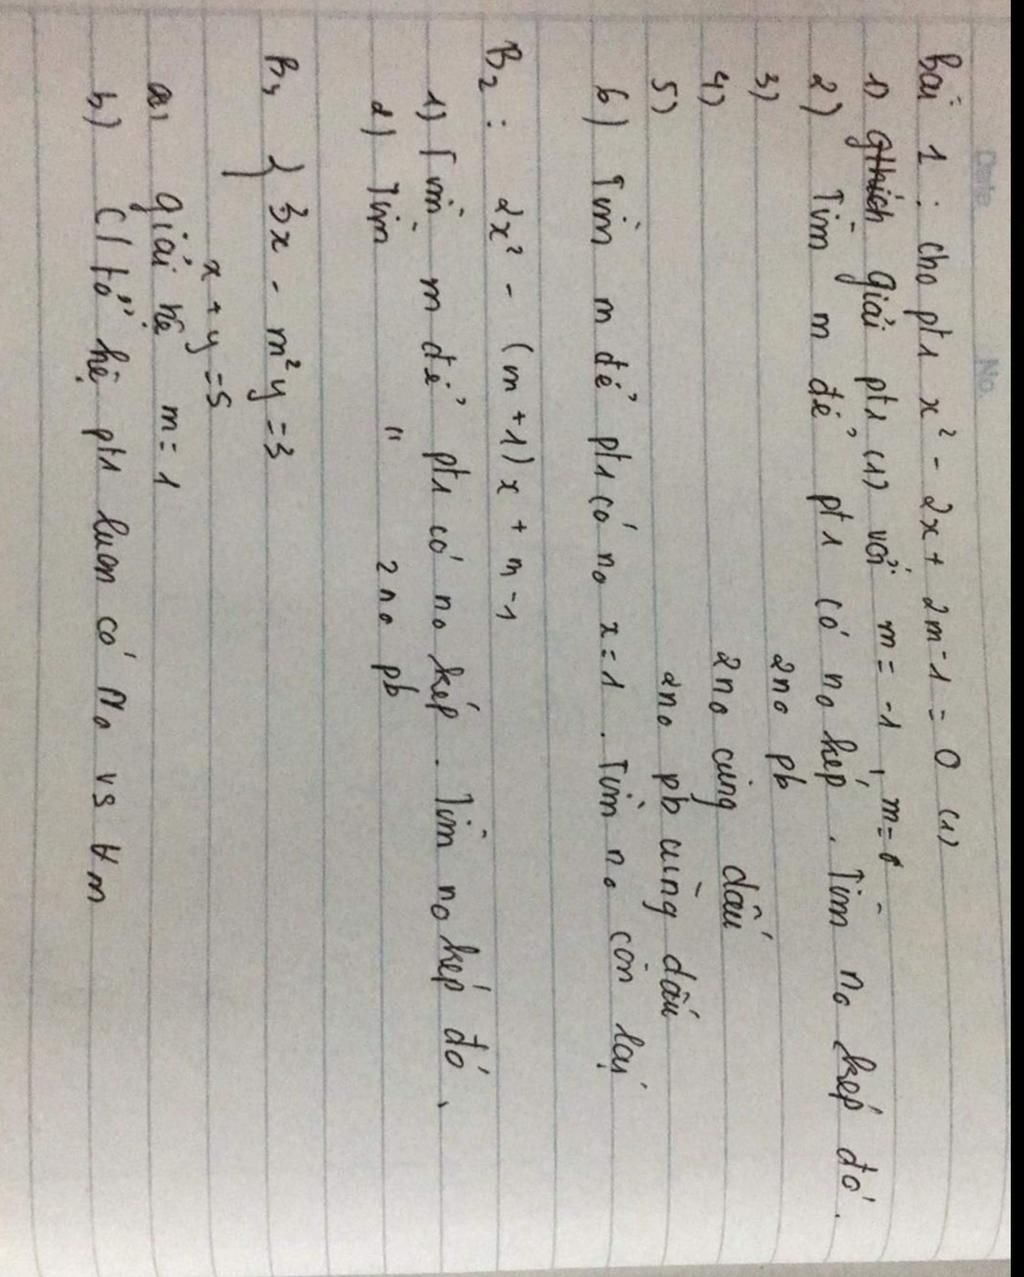 Date
No.
bài 1 : cho pt1 x² - 2x + 2m - 1 = 0 (1)
1) giải pt1 (1) với m = -1 , m =
2) Tìm m để pt1 có no kép . Tìm no kép đó .
3) 2 no pb
4) 2 no cùng dấu
5) 2 no pb cùng dấu
6) Tìm m để pt1 có no x = 1 . Tìm no còn lại
B2 : 2x² - (m + 1) x + m - 1
1) Tìm m để pt1 có no kép . Tìm no kép đó .
2) Tìm " 2 no pb
B3 { 3x - m²y = 3
x + y = 5
a) giải hệ m = 1
b) C/tỏ hệ pt1 luôn có no vs ∀ m